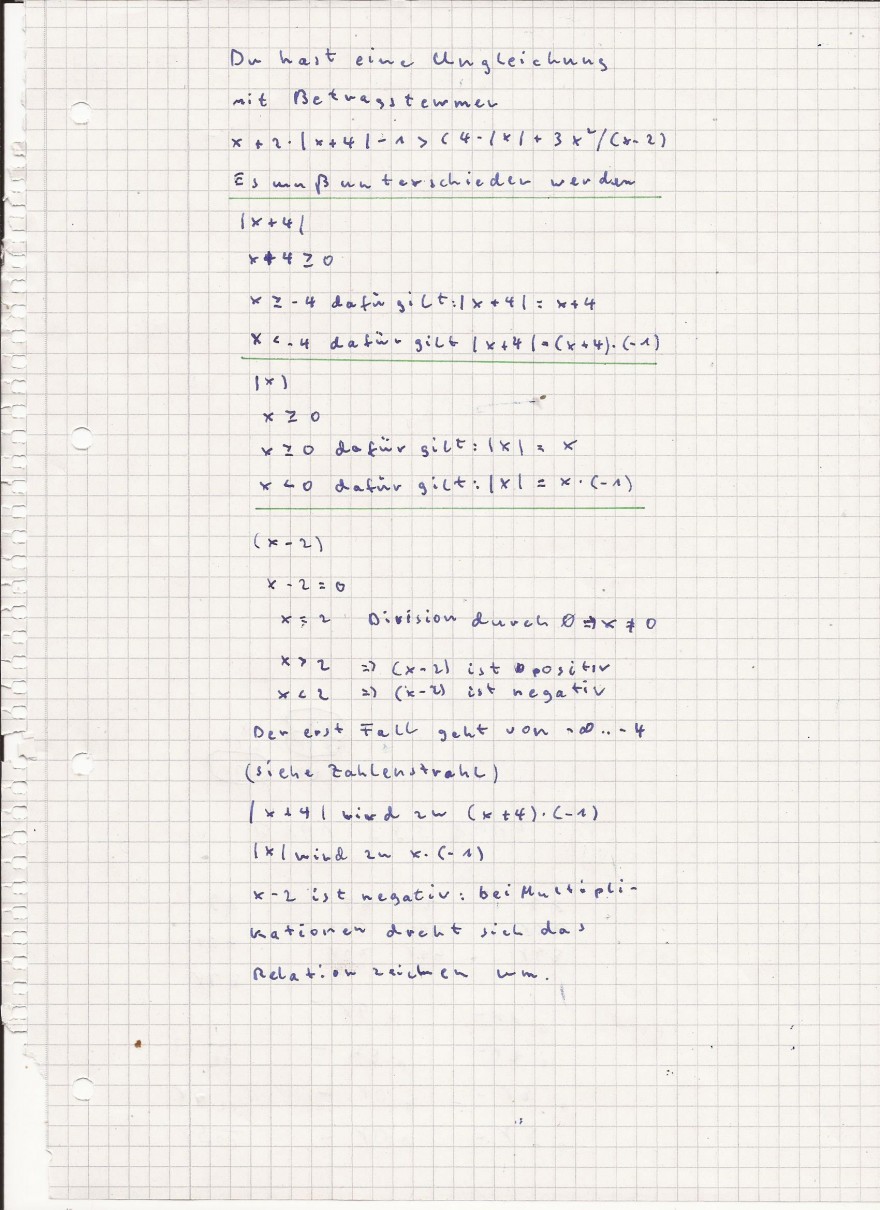 Du hast eine Ungleichung
mit Betragstermen
x + 2 · |x + 4| - 1 > (4 - |x| + 3x²/(x-2)
Es muß unterschieden werden
|x + 4|
x + 4 ≥ 0
x ≥ -4 dafür gilt: |x + 4| = x+4
x < -4 dafür gilt |x+4| = (x+4)·(-1)
|x)
x ≥ 0
x ≥ 0 dafür gilt: |x| = x
x < 0 dafür gilt: |x| = x · (-1)
(x - 2)
x - 2 = 0
x = 2 Division durch 0 => x ≠ 0
x > 2 => (x-2) ist positiv
x < 2 => (x-2) ist negativ
Der erst Fall geht von -∞ .. -4
(siehe Zahlenstrahl)
|x + 4| wird zu (x+4)·(-1)
|x| wird zu x·(-1)
x-2 ist negativ: bei Multipli-
kationen dreht sich das
Relationzeichen um.